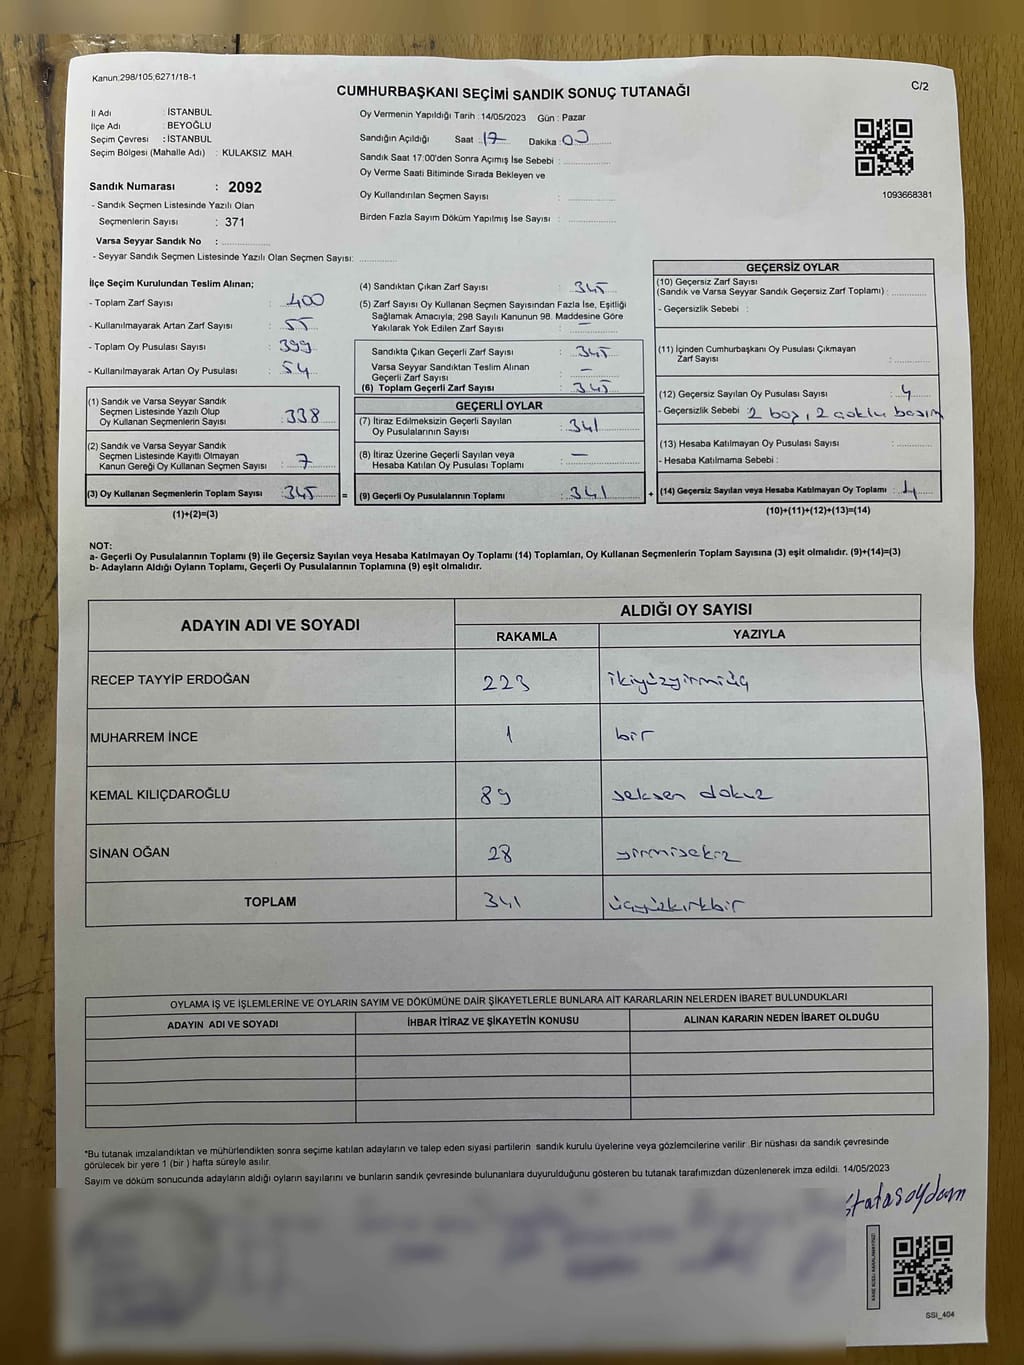 Kanun.298/105,6271/18-1
C/2
CUMHURBAŞKANI SEÇİMİ SANDIK SONUÇ TUTANAĞI
İl Adı : İSTANBUL
İlçe Adı : BEYOĞLU
Seçim Çevresi : İSTANBUL
Seçim Bölgesi (Mahalle Adı) : KULAKSIZ MAH.
Sandık Numarası : 2092
- Sandık Seçmen Listesinde Yazılı Olan
Seçmenlerin Sayısı : 371
Varsa Seyyar Sandık No :
- Seyyar Sandık Seçmen Listesinde Yazılı Olan Seçmen Sayısı:
Oy Vermenin Yapıldığı Tarih : 14/05/2023 Gün : Pazar
Sandığın Açıldığı Saat : 17 Dakika : 00
Sandık Saat 17:00'den Sonra Açımış İse Sebebi :
Oy Verme Saati Bitiminde Sırada Bekleyen ve
Oy Kullandırılan Seçmen Sayısı :
Birden Fazla Sayım Döküm Yapılmış İse Sayısı :
1093668381
İlçe Seçim Kurulundan Teslim Alınan;
- Toplam Zarf Sayısı : 400
- Kullanılmayarak Artan Zarf Sayısı : 55
- Toplam Oy Pusulası Sayısı : 399
- Kullanılmayarak Artan Oy Pusulası : 54
(1) Sandık ve Varsa Seyyar Sandık
Seçmen Listesinde Yazılı Olup
Oy Kullanan Seçmenlerin Sayısı : 338
(2) Sandık ve Varsa Seyyar Sandık
Seçmen Listesinde Kayıtlı Olmayan
Kanun Gereği Oy Kullanan Seçmen Sayısı : 7
(3) Oy Kullanan Seçmenlerin Toplam Sayısı : 345 =
(1)+(2)=(3)
(4) Sandıktan Çıkan Zarf Sayısı : 345
(5) Zarf Sayısı Oy Kullanan Seçmen Sayısından Fazla İse, Eşitliği
Sağlamak Amacıyla, 298 Sayılı Kanunun 98. Maddesine Göre
Yakılarak Yok Edilen Zarf Sayısı : —
Sandıkta Çıkan Geçerli Zarf Sayısı : 345
Varsa Seyyar Sandıktan Teslim Alınan
Geçerli Zarf Sayısı : —
(6) Toplam Geçerli Zarf Sayısı : 345
GEÇERLİ OYLAR
(7) İtiraz Edilmeksizin Geçerli Sayılan
Oy Pusulalarının Sayısı : 341
(8) İtiraz Üzerine Geçerli Sayılan veya
Hesaba Katılan Oy Pusulası Toplamı : —
(9) Geçerli Oy Pusulalarının Toplamı : 341 +
GEÇERSİZ OYLAR
(10) Geçersiz Zarf Sayısı
(Sandık ve Varsa Seyyar Sandık Geçersiz Zarf Toplamı) :
- Geçersizlik Sebebi :
(11) İçinden Cumhurbaşkanı Oy Pusulası Çıkmayan
Zarf Sayısı :
(12) Geçersiz Sayılan Oy Pusulası Sayısı : 4
- Geçersizlik Sebebi : 2 boş, 2 çoklu basım
(13) Hesaba Katılmayan Oy Pusulası Sayısı :
- Hesaba Katılmama Sebebi :
(14) Geçersiz Sayılan veya Hesaba Katılmayan Oy Toplamı : 4
(10)+(11)+(12)+(13)=(14)
NOT:
a- Geçerli Oy Pusulalarının Toplamı (9) ile Geçersiz Sayılan veya Hesaba Katılmayan Oy Toplamı (14) Toplamları, Oy Kullanan Seçmenlerin Toplam Sayısına (3) eşit olmalıdır. (9)+(14)=(3)
b- Adayların Aldığı Oyların Toplamı, Geçerli Oy Pusulalarının Toplamına (9) eşit olmalıdır.
ADAYIN ADI VE SOYADI
ALDIĞI OY SAYISI
RAKAMLA YAZIYLA
RECEP TAYYİP ERDOĞAN 223 ikiyüzyirmiüç
MUHARREM İNCE 1 bir
KEMAL KILIÇDAROĞLU 89 seksen dokuz
SİNAN OĞAN 28 yirmisekiz
TOPLAM 341 üçyüzkırkbir
OYLAMA İŞ VE İŞLEMLERİNE VE OYLARIN SAYIM VE DÖKÜMÜNE DAİR ŞİKAYETLERLE BUNLARA AİT KARARLARIN NELERDEN İBARET BULUNDUKLARI
ADAYIN ADI VE SOYADI İHBAR İTİRAZ VE ŞİKAYETİN KONUSU ALINAN KARARIN NEDEN İBARET OLDUĞU
*Bu tutanak imzalandıktan ve mühürlendikten sonra seçime katılan adayların ve talep eden siyasi partilerin sandık kurulu üyelerine veya gözlemcilerine verilir. Bir nüshası da sandık çevresinde
görülecek bir yere 1 (bir) hafta süreyle asılır.
Sayım ve döküm sonucunda adayların aldığı oyların sayılarını ve bunların sandık çevresinde bulunanlara duyurulduğunu gösteren bu tutanak tarafımızdan düzenlenerek imza edildi. 14/05/2023
SSI_404